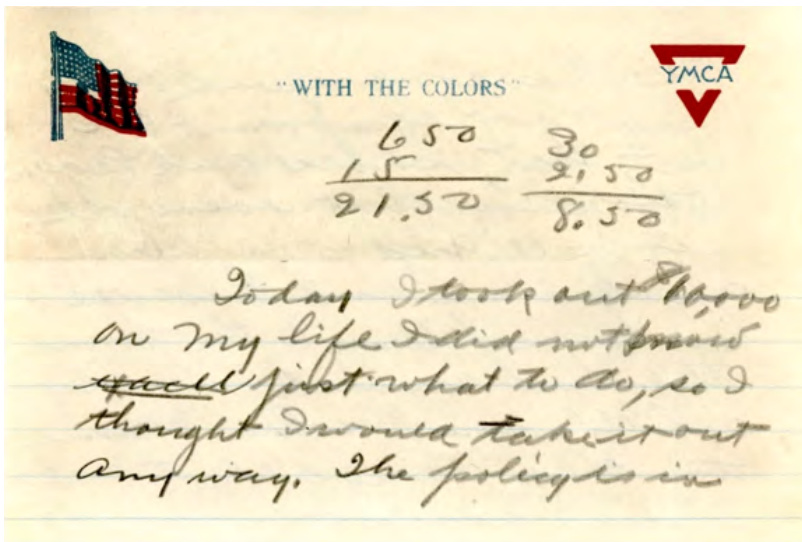 YMCA
"WITH THE COLORS"
6 50 30
15 21.50
21.50 8.50
Today I took out $10,000
on my life I did not know
just what to do, so I
thought I would take it out
any way. The policy is in